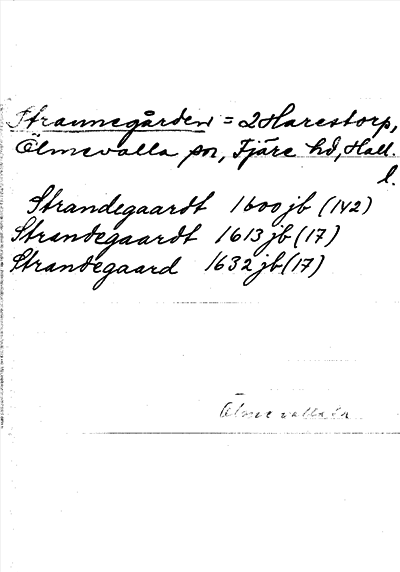 Strannegården = 2 Harestorp,
Ölmevalla sn, Fjäre hd, Hall.
l.
Strandegaardt 1600 jb (142)
Strandegaardt 1613 jb (17)
Strandegaard 1632 jb (17)
Ölmevalla sn